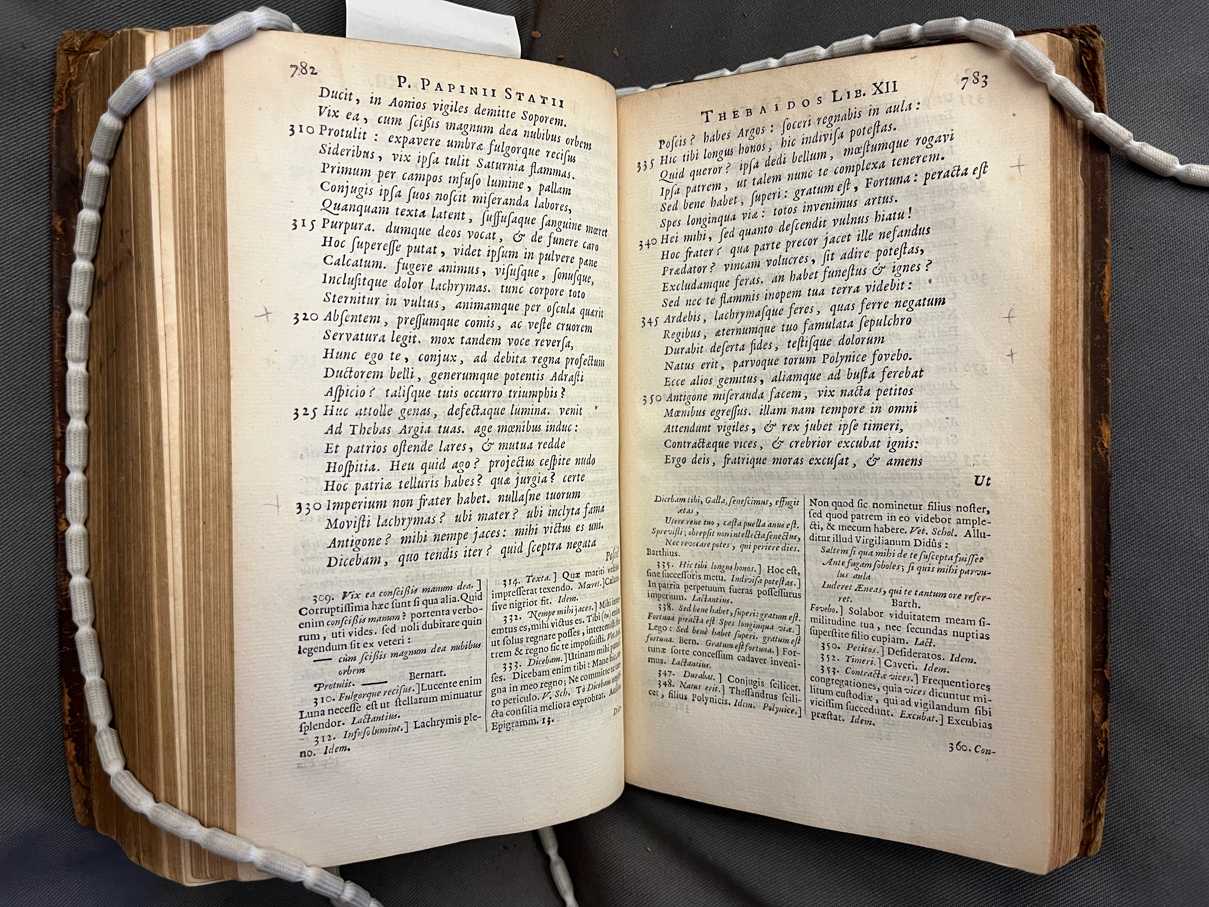 782
P. PAPINII STATII
Ducit, in Aonios vigiles demitte Soporem.
Vix ea, cum ſciſſis magnum dea nubibus orbem
310 Protulit : expavere umbræ fulgorque reciſus
Sideribus, vix ipſa tulit Saturnia flammas.
Primum per campos infuſo lumine, pallam
Conjugis ipſa ſuos noſcit miſeranda labores,
Quanquam texta latent, ſuffuſaque ſanguine mœret
315 Purpura. dumque deos vocat, & de funere caro
Hoc ſupereſſe putat, videt ipſum in pulvere pane
Calcatum. fugere animus, viſuſque, ſonuſque,
Incluſitque dolor lachrymas. tunc corpore toto
Sternitur in vultus, animamque per oſcula quærit
320 Abſentem, preſſumque comis, ac veſte cruorem
Servatura legit. mox tandem voce reverſa,
Hunc ego te, conjux, ad debita regna profectum
Ductorem belli, generumque potentis Adraſti
Aſpicio? taliſque tuis occurro triumphis?
325 Huc attolle genas, defectaque lumina. venit
Ad Thebas Argia tuas. age mœnibus induc:
Et patrios oſtende lares, & mutua redde
Hoſpitia. Heu quid ago? projectus ceſpite nudo
Hoc patriæ telluris habes? quæ jurgia? certe
330 Imperium non frater habet. nullaſne tuorum
Moviſti lachrymas? ubi mater? ubi inclyta fama
Antigone? mihi nempe jaces: mihi victus es uni.
Dicebam, quo tendis iter? quid ſceptra negata
309. Vix ea conſciſſis manum dea.]
Corruptiſſima hæc ſunt ſi qua alia. Quid
enim conſciſſis manum? portenta verbo-
rum, uti vides. ſed noli dubitare quin
legendum ſit ex veteri:
—— cum ſciſſis magnum dea nubibus
orbem
Protulit. —— Bernart.
310. Fulgorque reciſus.] Lucente enim
Luna neceſſe eſt ut ſtellatum minuatur
ſplendor. Lactantius.
312. Infuſo lumine.] Lachrymis ple-
no. Idem.
314. Texta.] Quæ mariti
impreſſerat texendo. Mœret.]
ſive nigrior fit. Idem.
332. Nempe mihi jaces.] Mihi
emtus es, mihi victus es. Tibi
ut ſolus regnare poſſes,
trem & regno ſic te impoſuiſti.
333. Dicebam.] Utinam mihi
ſes. Dicebam enim tibi: Mane
gna in meo regno; Ne committe
to periculo. V. Sch. Τὸ Dicebam
cta conſilia meliora exprobrat.
Epigramm. 13.
THEBAIDOS LIB. XII
783
Poſcis? habes Argos: ſoceri regnabis in aula:
335 Hic tibi longus honos, hic indiviſa poteſtas.
Quid queror? ipſa dedi bellum, mœſtumque rogavi
Ipſa patrem, ut talem nunc te complexa tenerem.
Sed bene habet, ſuperi: gratum eſt, Fortuna: peracta eſt
Spes longinqua viæ: totos invenimus artus.
340 Hei mihi, ſed quanto deſcendit vulnus hiatu!
Hoc frater? qua parte precor jacet ille nefandus
Prædator? vincam volucres, ſit adire poteſtas,
Excludamque feras. an habet funeſtus & ignes?
Sed nec te flammis inopem tua terra videbit:
345 Ardebis, lachrymaſque feres, quas ferre negatum
Regibus, æternumque tuo famulata ſepulchro
Durabit deſerta fides, teſtiſque dolorum
Natus erit, parvoque torum Polynice fovebo.
Ecce alios gemitus, aliamque ad buſta ferebat
350 Antigone miſeranda facem, vix nacta petitos
Mœnibus egreſſus. illam nam tempore in omni
Attendunt vigiles, & rex jubet ipſe timeri,
Contractæque vices, & crebrior excubat ignis:
Ergo deis, fratrique moras excuſat, & amens
Ut
Dicebam tibi, Galla, ſeneſcimus, effugit
ætas,
Utere rene tuo, caſta puella anus eſt.
Spreviſti; obrepſit non intellecta ſenectus,
Nec revocare potes, qui periere dies.
Barthius.
335. Hic tibi longus honos.] Hoc eſt,
ſine ſucceſſoris metu. Indiviſa poteſtas.]
In patria perpetuum fueras poſſeſſurus
imperium. Lactantius.
338. Sed bene habet, ſuperi: gratum eſt
Fortuna peracta eſt Spes longinqua viæ.]
Lego: Sed benè habet ſuperi, gratum eſt
fortuna. Bern. Gratum eſt fortuna.] For-
tunæ ſorte conceſſum cadaver inveni-
mus. Lactantius.
347. Durabit.] Conjugis ſcilicet.
348. Natus erit.] Theſſandrus ſcili-
cet, filius Polynicis. Idem. Polynice.]
Non quod ſic nominetur filius noſter,
ſed quod patrem in eo videbor ample-
cti, & mecum habere. Vet. Schol. Allu-
ditur illud Virgilianum Didûs:
Saltem ſi qua mihi de te ſuſcepta fuiſſet
Ante fugam ſoboles; ſi quis mihi parvu-
lus aula
Luderet Æneas, qui te tantum ore refer-
ret. Barth.
Fovebo.] Solabor viduitatem meam ſi-
militudine tua, nec ſecundas nuptias
ſuperſtite filio cupiam. Lact.
350. Petitos.] Deſideratos. Idem.
352. Timeri.] Caveri. Idem.
353. Contractæ vices.] Frequentiores
congregationes, quia vices dicuntur mi-
litum cuſtodiæ, qui ad vigilandum ſibi
viciſſim ſuccedunt. Excubat.] Excubias
præſtat. Idem.
360. Con-